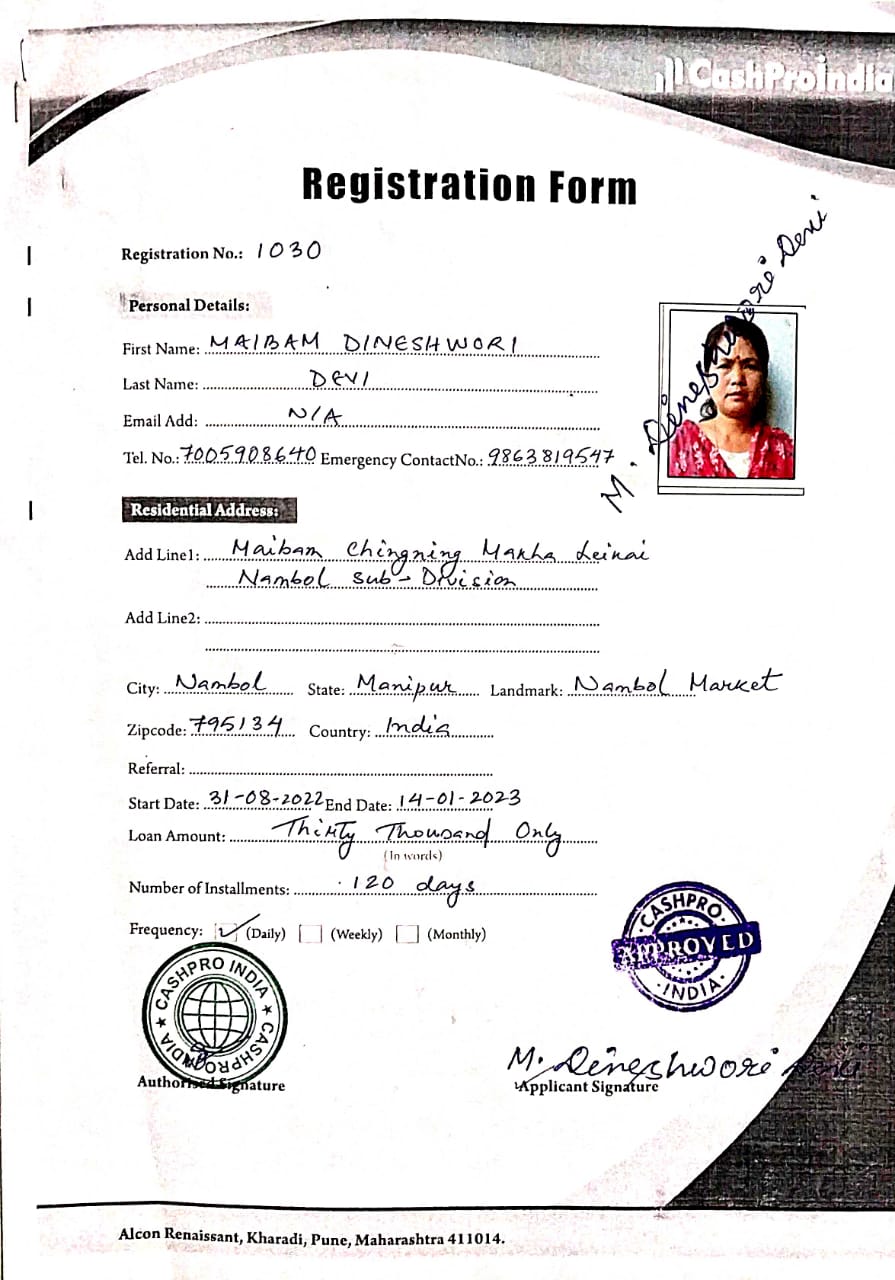 CashProIndia
Registration Form
Registration No.: 1030
Personal Details:
First Name: MAIBAM DINESHWORI
Last Name: DEVI
Email Add: N/A
Tel. No.: 7005908640 Emergency ContactNo.: 9863819547
M. Dineshwori Devi
Residential Address:
Add Line1: Maibam Chingning Makha Leikai
Nambol Sub-Division
Add Line2:
City: Nambol State: Manipur Landmark: Nambol Market
Zipcode: 795134 Country: India
Referral:
Start Date: 31-08-2022 End Date: 14-01-2023
Loan Amount: Thirty Thousand Only
(In words)
Number of Installments: 120 days
Frequency: (Daily) (Weekly) (Monthly)
CASHPRO INDIA APPROVED
CASHPRO INDIA ★ CASHPRO INDIA ★
M. Dineshwori Devi
Authorised Signature Applicant Signature
Alcon Renaissant, Kharadi, Pune, Maharashtra 411014.